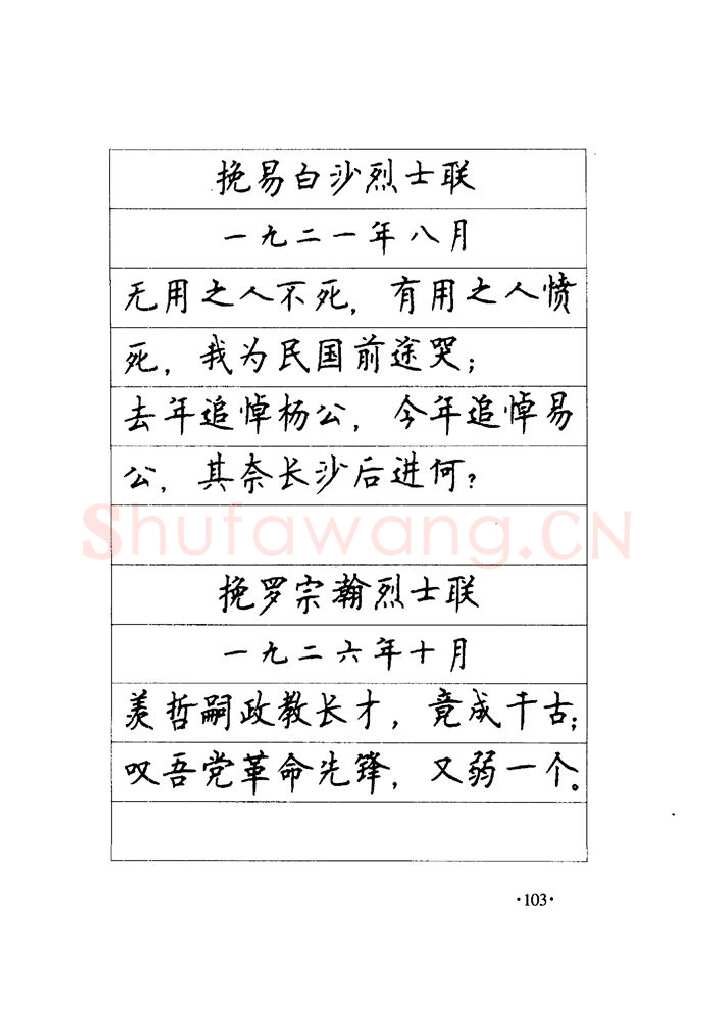 挽易白沙烈士联
一九二一年八月
无用之人不死，有用之人愤
死，我为民国前途哭；
去年追悼杨公，今年追悼易
公，其奈长沙后进何？
Shufawang.CN
挽罗宗瀚烈士联
一九二六年十月
羡哲嗣政教长才，竟成千古；
叹吾党革命先锋，又弱一个。
·103·